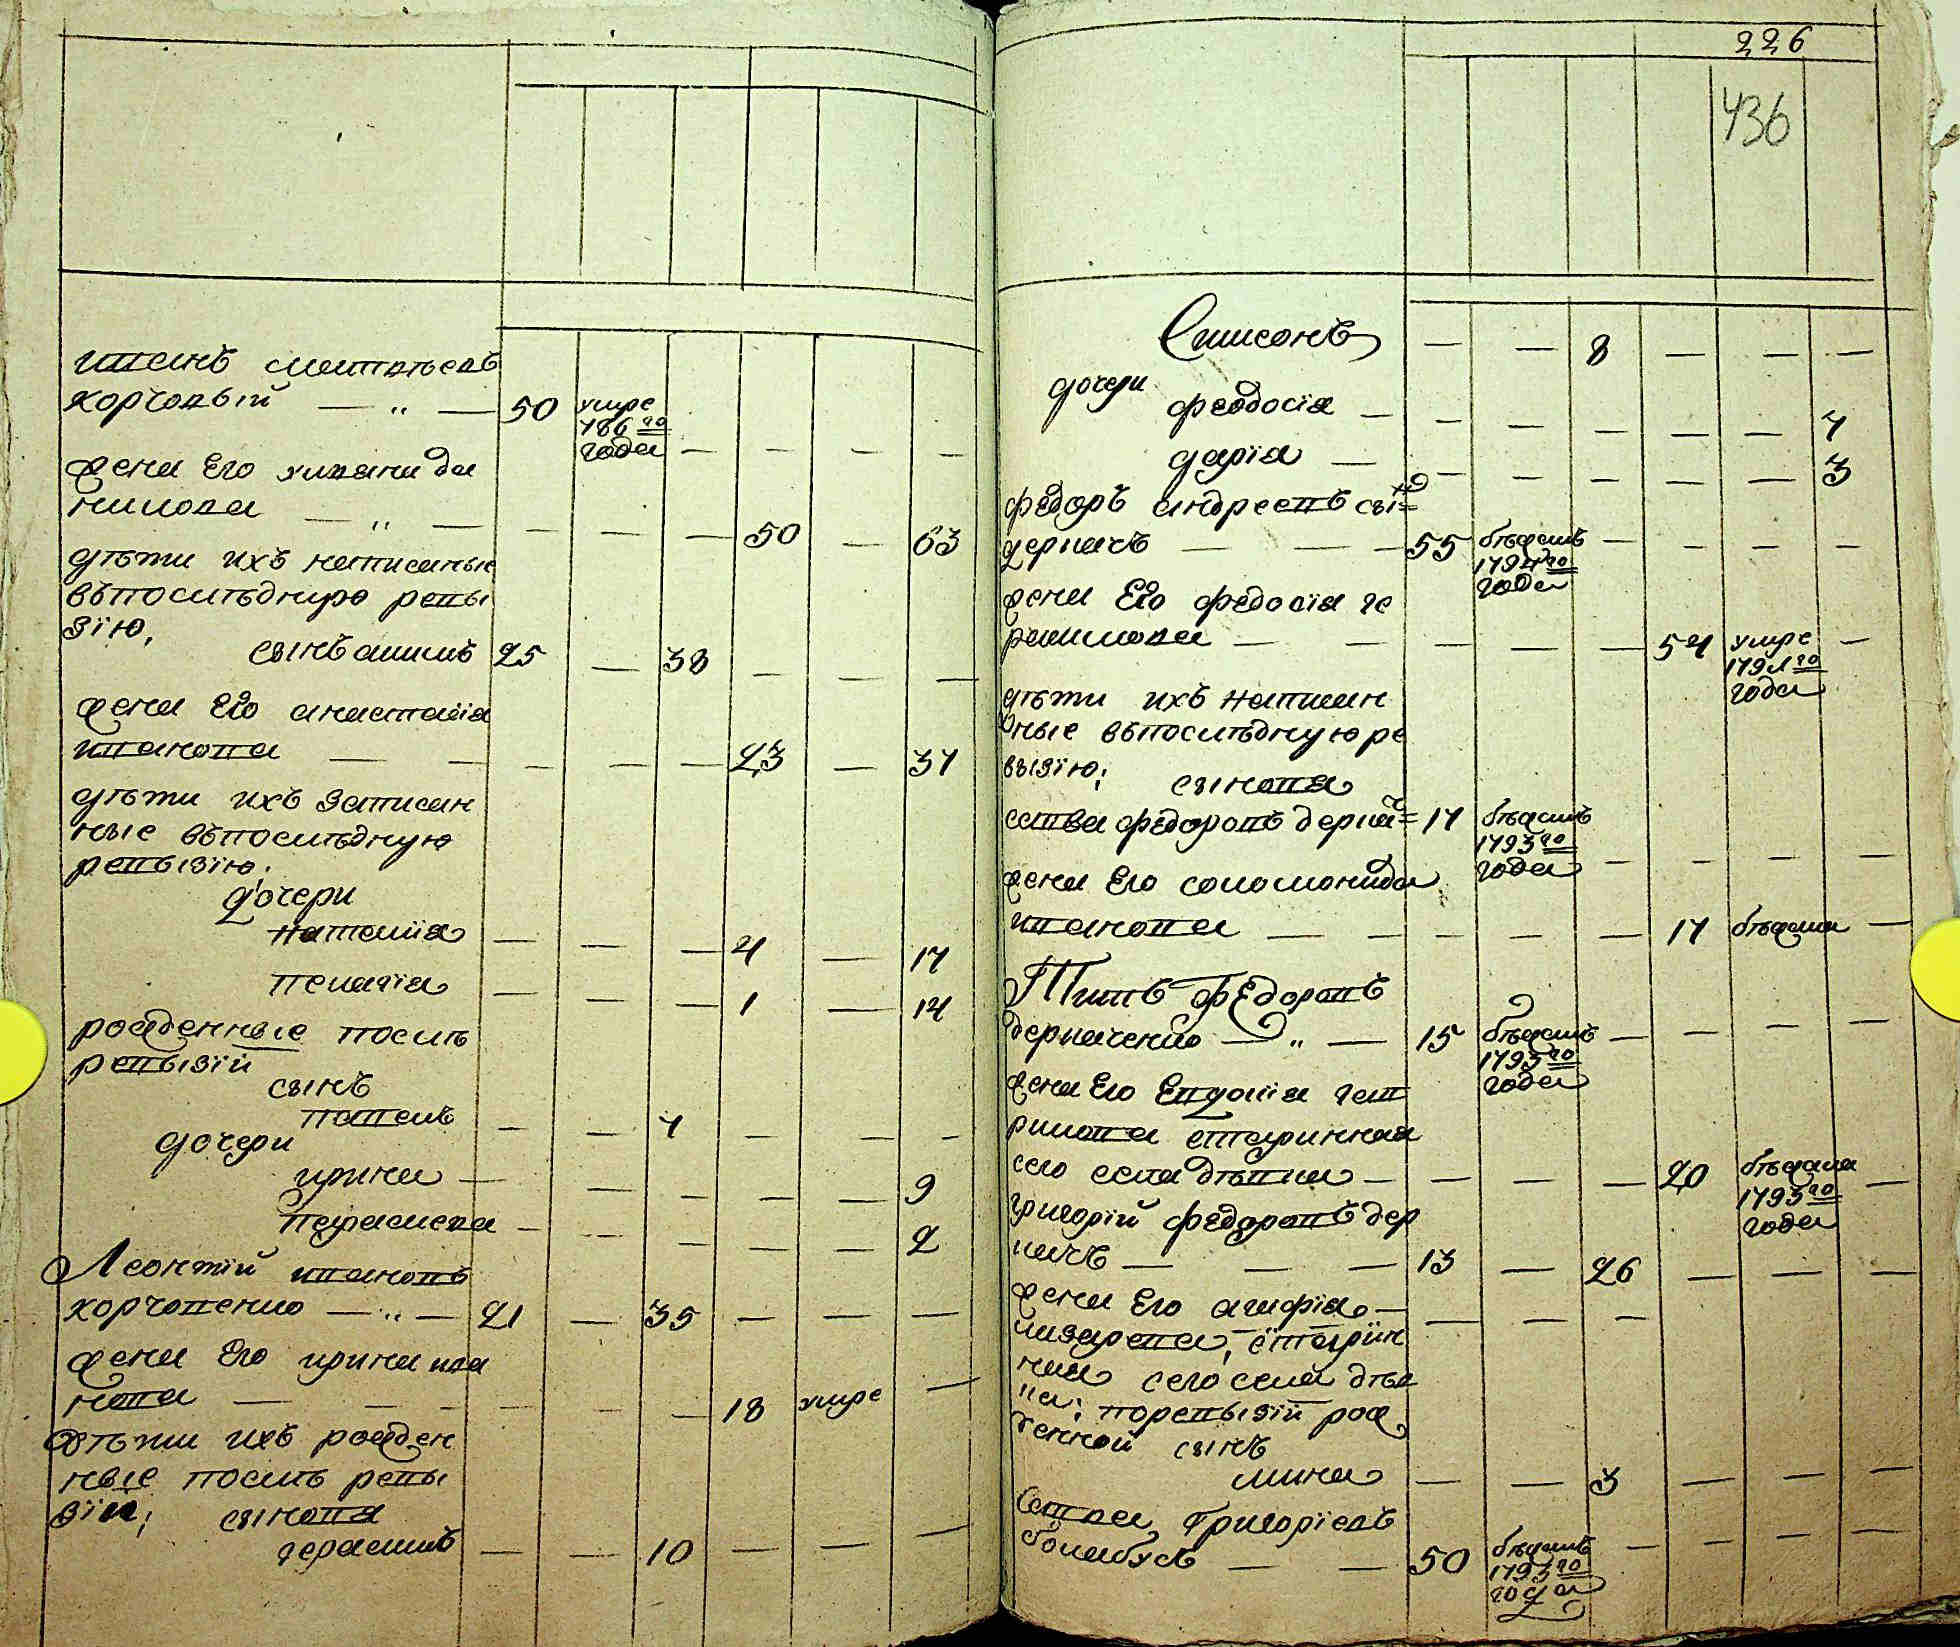 иванъ матвѣевъ
корчовый — „ — 50 умре — — — —
786 го
года
жена Его улияна да
нилова — „ — — — — 50 — 63
дѣти ихъ написаные
въпослѣднюю ревы
зїю,
сынъ акимъ 25 — 38 — — —
жена Его анастасїя
иванова — — — — — 23 — 37
дѣти ихъ записан
ные въпослѣдную
ревызїю;
дочери
наталїя — — — 4 — 17
пелагїя — — — 1 — 14
рожденные послѣ
ревызїй
сынъ
павелъ — — 7 — — —
дочери
ирина — — — — — 9
параскева — — — — — 2
Леонтїй ивановъ
корчовенко — „ — 21 — 35 — — —
жена Его ирина ива
нова — — — — — 18 умре —
дѣти ихъ рожден
ные послѣ ревы
зїи; сынова
герасимъ — — 10 — — —
226
436
Симсонъ — — 8 — — —
дочери
феодосїя — — — — — — 7
дарїя — — — — — — 3
федоръ андреевъ сы=
деркачъ — — — 55 бѣжалъ — — — —
1794 го
года
жена Его федосїя ге
расимова — — — — — 54 умре —
1791 го
года
дѣти ихъ написан
ные въпослѣдную ре
вызїю; сынова
савва федоровъ деркач= 17 бѣжалъ — — — —
1793 го
года
жена Его соломонида
иванова — — — — — 17 бѣжала —
Титъ федоровъ
деркаченко — „ — 15 бѣжалъ — — — —
1793 го
года
жена Его Евдокїя гав
рилова втаринная
сего села дѣвка — — — — 20 бѣжала —
1793 го
года
григорїй федоровъ дер
качъ — — — 13 — 26 — — —
жена Его агафїя —
лазарева, ставрин — — —
ная сего села дѣв
ка; поревызїй рож
денной сынъ
мина — — 3 — — —
Савва Григорїевъ
болабусъ — — 50 бѣжалъ — — — —
1793 го
года